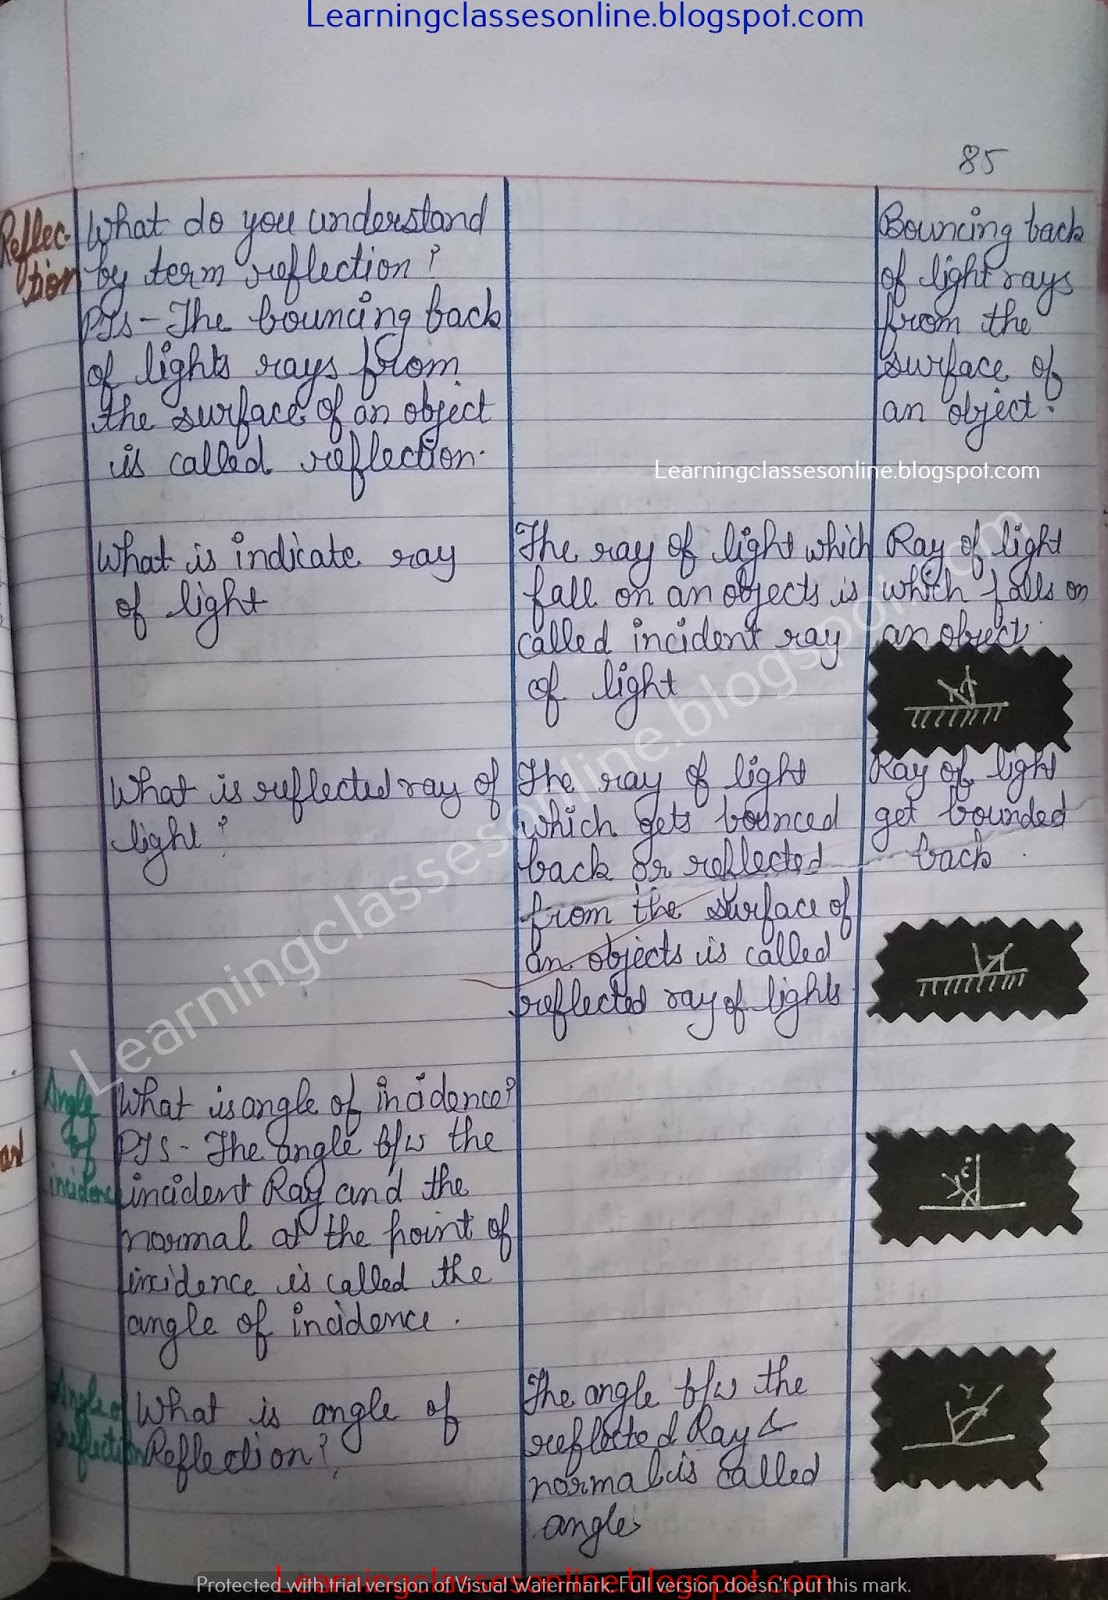 Learningclassesonline.blogspot.com
85
Reflec-
tion
What do you understand
by term reflection?
PTs - The bouncing back
of lights rays from
the surface of an object
is called reflection.
Bouncing back
of light rays
from the
surface of
an object.
Learningclassesonline.blogspot.com
What is indicate ray
of light
The ray of light which
fall on an objects is
called incident ray
of light
Ray of light
which falls on
an object.
What is reflected ray of
light?
The ray of light
which gets bounced
back or reflected
from the surface of
an objects is called
reflected ray of lights
Ray of light
get bounded
back.
Learningclassesonline.blogspot.com
Angle
of
incidence
What is angle of incidence?
PTS - The angle b/w the
incident Ray and the
normal at the point of
incidence is called the
angle of incidence.
i
Angle of
reflection
What is angle of
Reflection?
The angle b/w the
reflected Ray &
normal is called
angle
r
Learningclassesonline.blogspot.com
Protected with trial version of Visual Watermark. Full version doesn't put this mark.